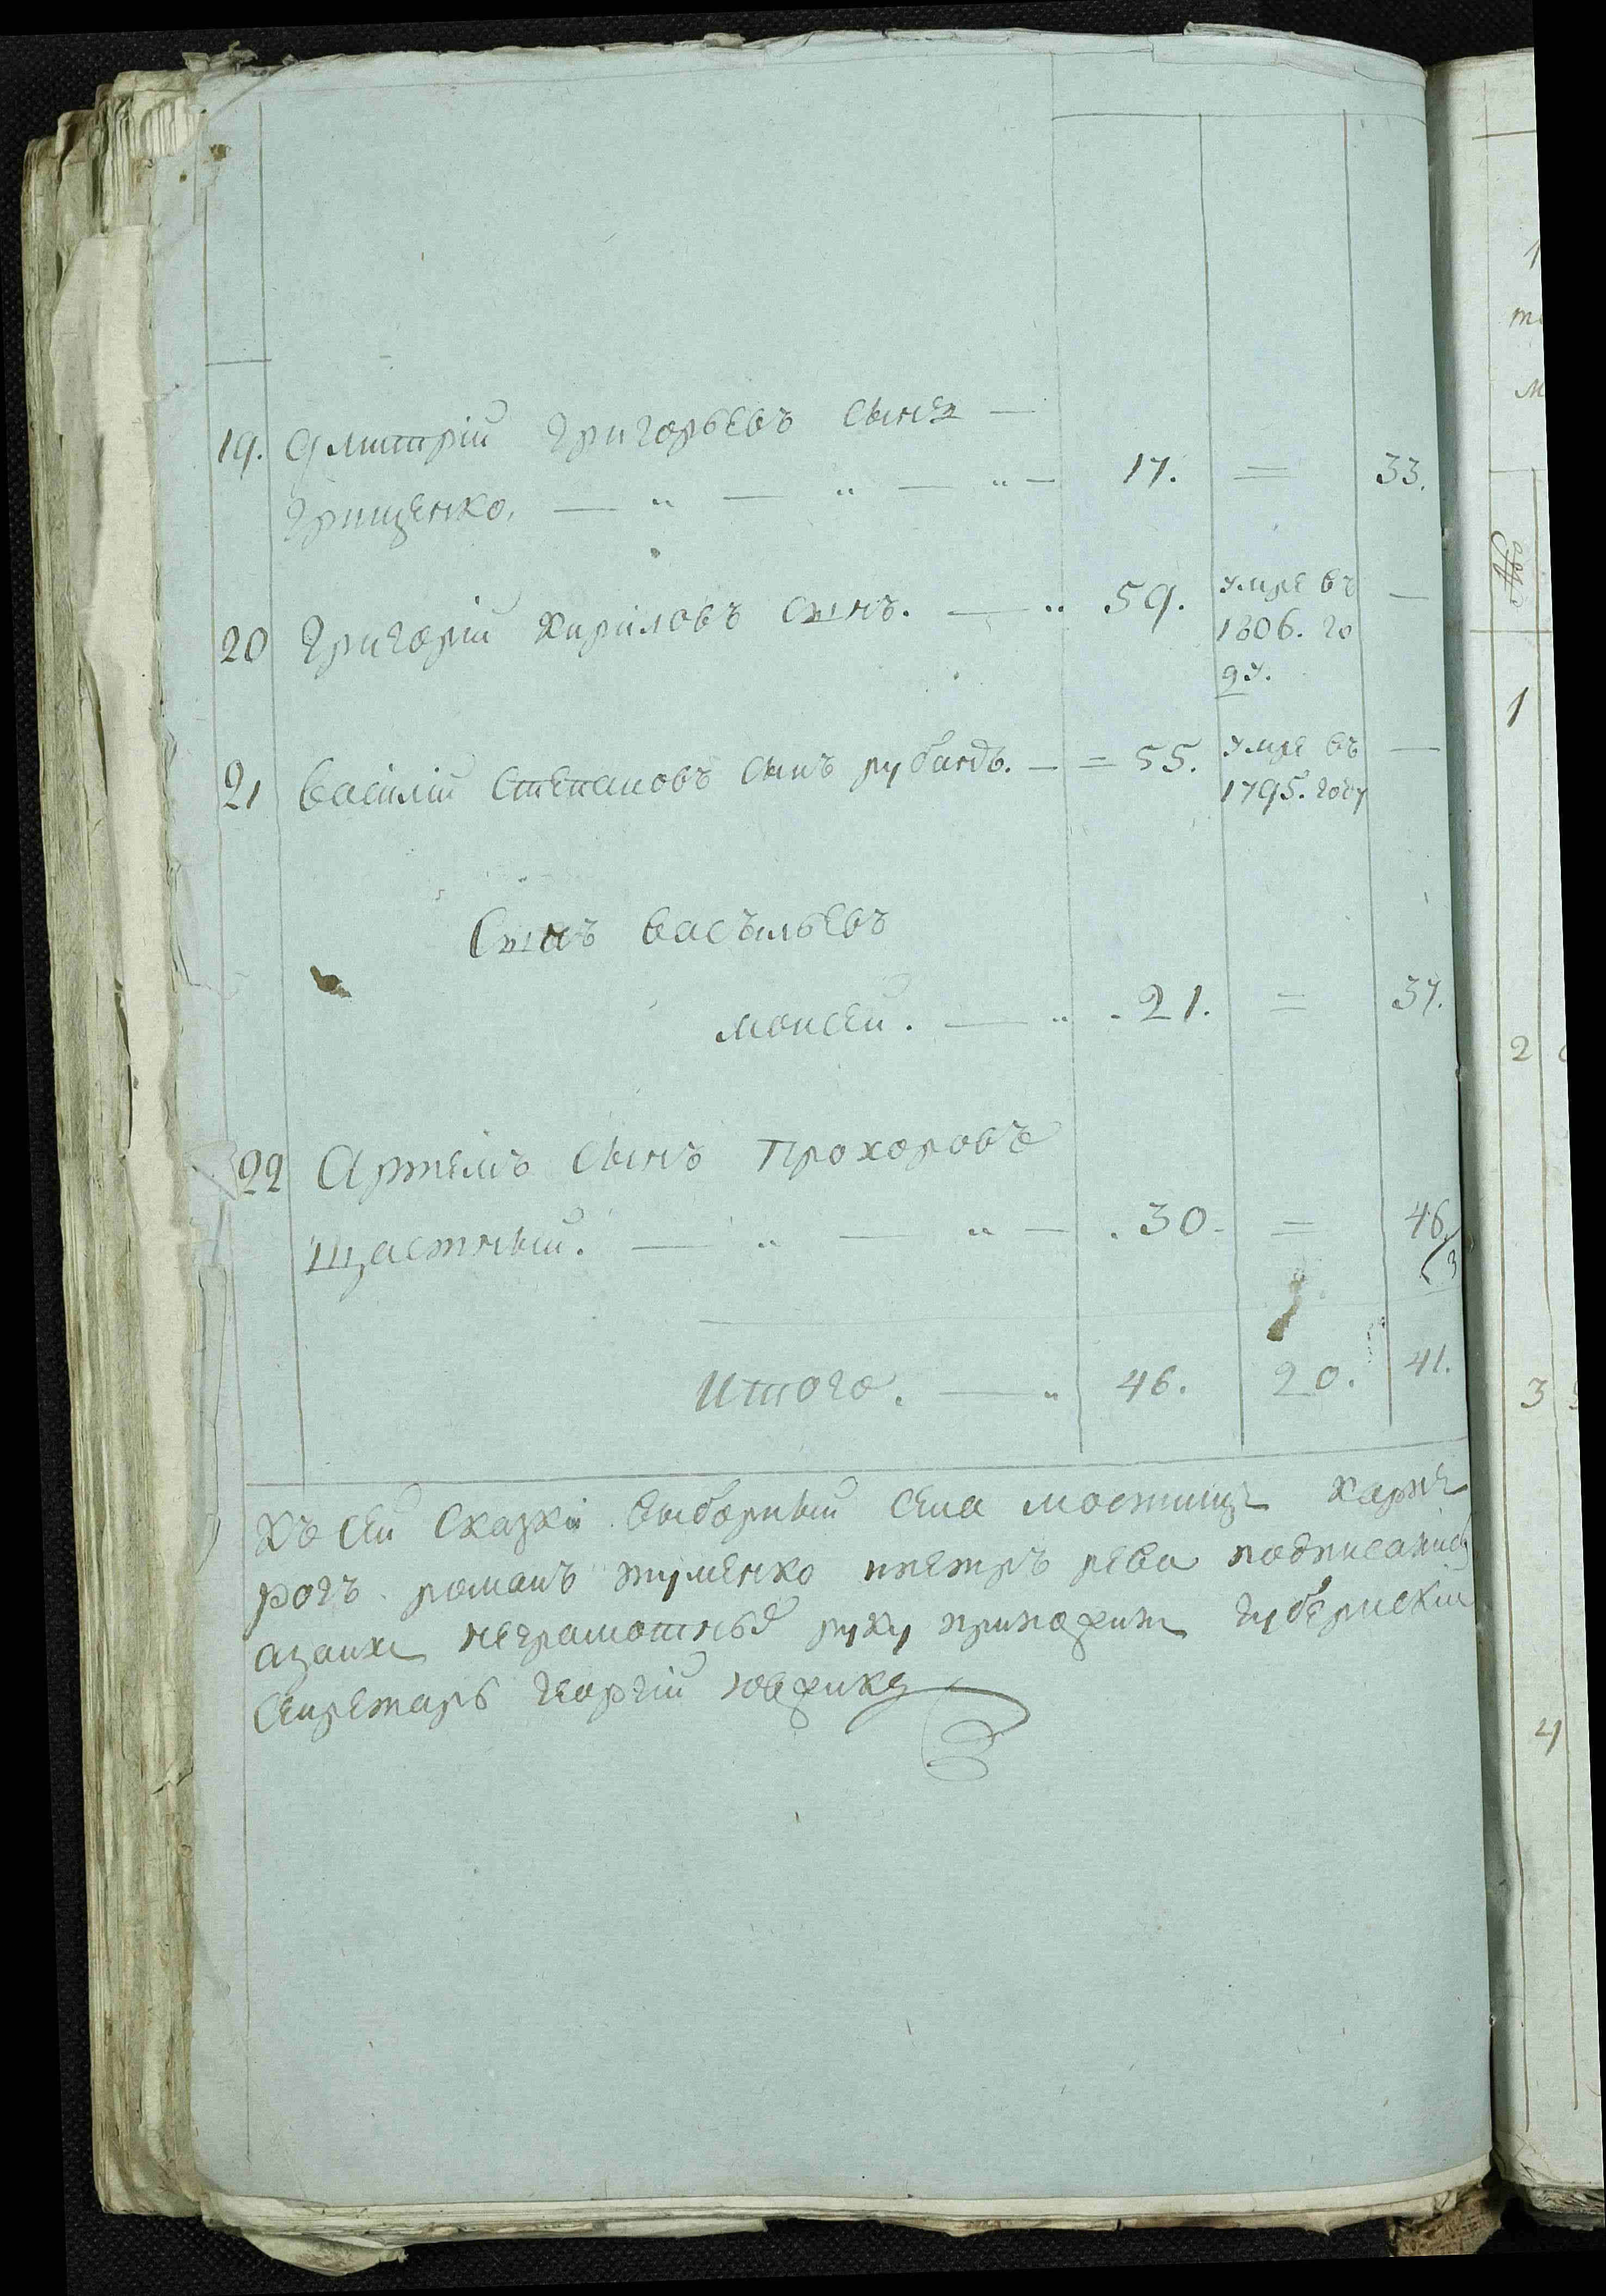 19. Дмитрій Григорьевъ сынъ —
Грищенко. — „ — „ — „ — 17. = 33.
20 Григорій Кириловъ сынъ. — „ 59. умре въ —
1806. го
ду.
21 Василій Степановъ сынъ рубанъ. — = 55. умре въ —
1795. году
Сынъ Васъильевъ
Моисей. — „ . 21. = 37.
22 Артемъ сынъ Прохоровъ
Щастный. — „ — „ — . 30. = 46.
Итого. — „ 46. 20. 41.
Къ сей сказки выборный села мостищъ
романъ петръ рева
неграмотные руку приложил губернскій
Секретарь Георгій
1
2
3
4